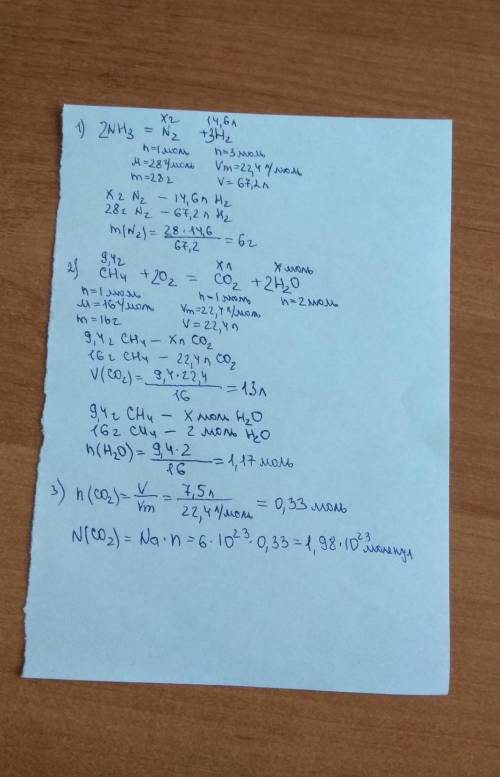 xг 14,6л
1) 2NH3 = N2 + 3H2
n=1моль n=3моль
M=28г/моль Vm=22,4 л/моль
m=28г V=67,2л
xг N2 – 14,6л H2
28г N2 – 67,2л H2
m(N2) = 28·14,6 / 67,2 = 6г
9,4г xл x моль
2) CH4 + 2O2 = CO2 + 2H2O
n=1моль n=1моль n=2моль
M=16г/моль Vm=22,4л/моль
m=16г V=22,4л
9,4г CH4 – xл CO2
16г CH4 – 22,4л CO2
V(CO2) = 9,4·22,4 / 16 = 13л
9,4г CH4 – x моль H2O
16г CH4 – 2 моль H2O
n(H2O) = 9,4·2 / 16 = 1,17моль
3) n(CO2) = V / Vm = 7,5л / 22,4л/моль = 0,33 моль
N(CO2) = Na·n = 6·10²³·0,33 = 1,98·10²³ молекул